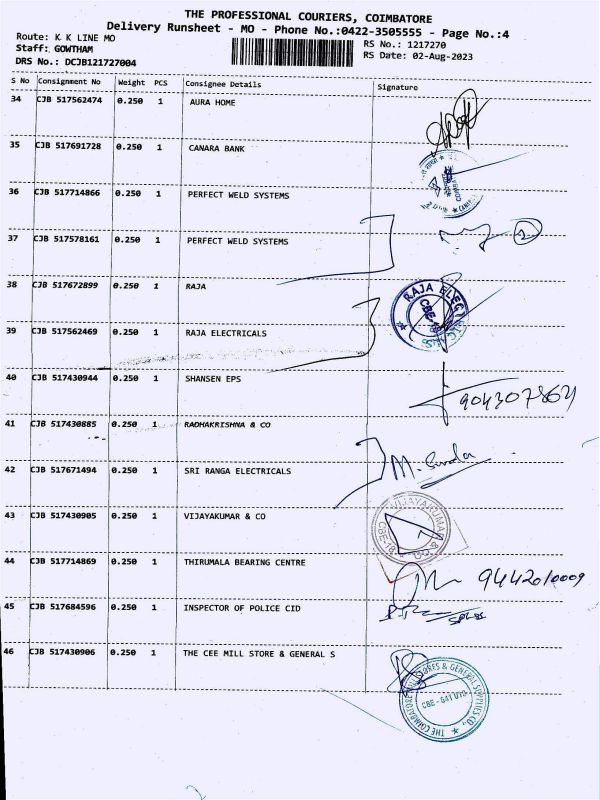 THE PROFESSIONAL COURIERS, COIMBATORE
Delivery Runsheet - MO - Phone No.:0422-3505555 - Page No.:4
Route: K K LINE MO
RS No.: 1217270
Staff: GOWTHAM
RS Date: 02-Aug-2023
DRS No.: DCJB121727004
S No Consignment No Weight PCS Consignee Details Signature
34 CJB 517562474 0.250 1 AURA HOME
35 CJB 517691728 0.250 1 CANARA BANK
36 CJB 517714866 0.250 1 PERFECT WELD SYSTEMS
37 CJB 517578161 0.250 1 PERFECT WELD SYSTEMS
2
38 CJB 517672899 0.250 1 RAJA
RAJA ELECTRICALS
CBE-18
39 CJB 517562469 0.250 1 RAJA ELECTRICALS
40 CJB 517430944 0.250 1 SHANSEN EPS
904307864
41 CJB 517430885 0.250 1 RADHAKRISHNA & CO
42 CJB 517671494 0.250 1 SRI RANGA ELECTRICALS
43 CJB 517430905 0.250 1 VIJAYAKUMAR & CO
VIJAYAKUMAR & CO
CBE-18
44 CJB 517714869 0.250 1 THIRUMALA BEARING CENTRE
9442010009
45 CJB 517684596 0.250 1 INSPECTOR OF POLICE CID
46 CJB 517430906 0.250 1 THE CEE MILL STORE & GENERAL S
THE COIMBATORE STORES & GENERAL SUPPLIES CO.,